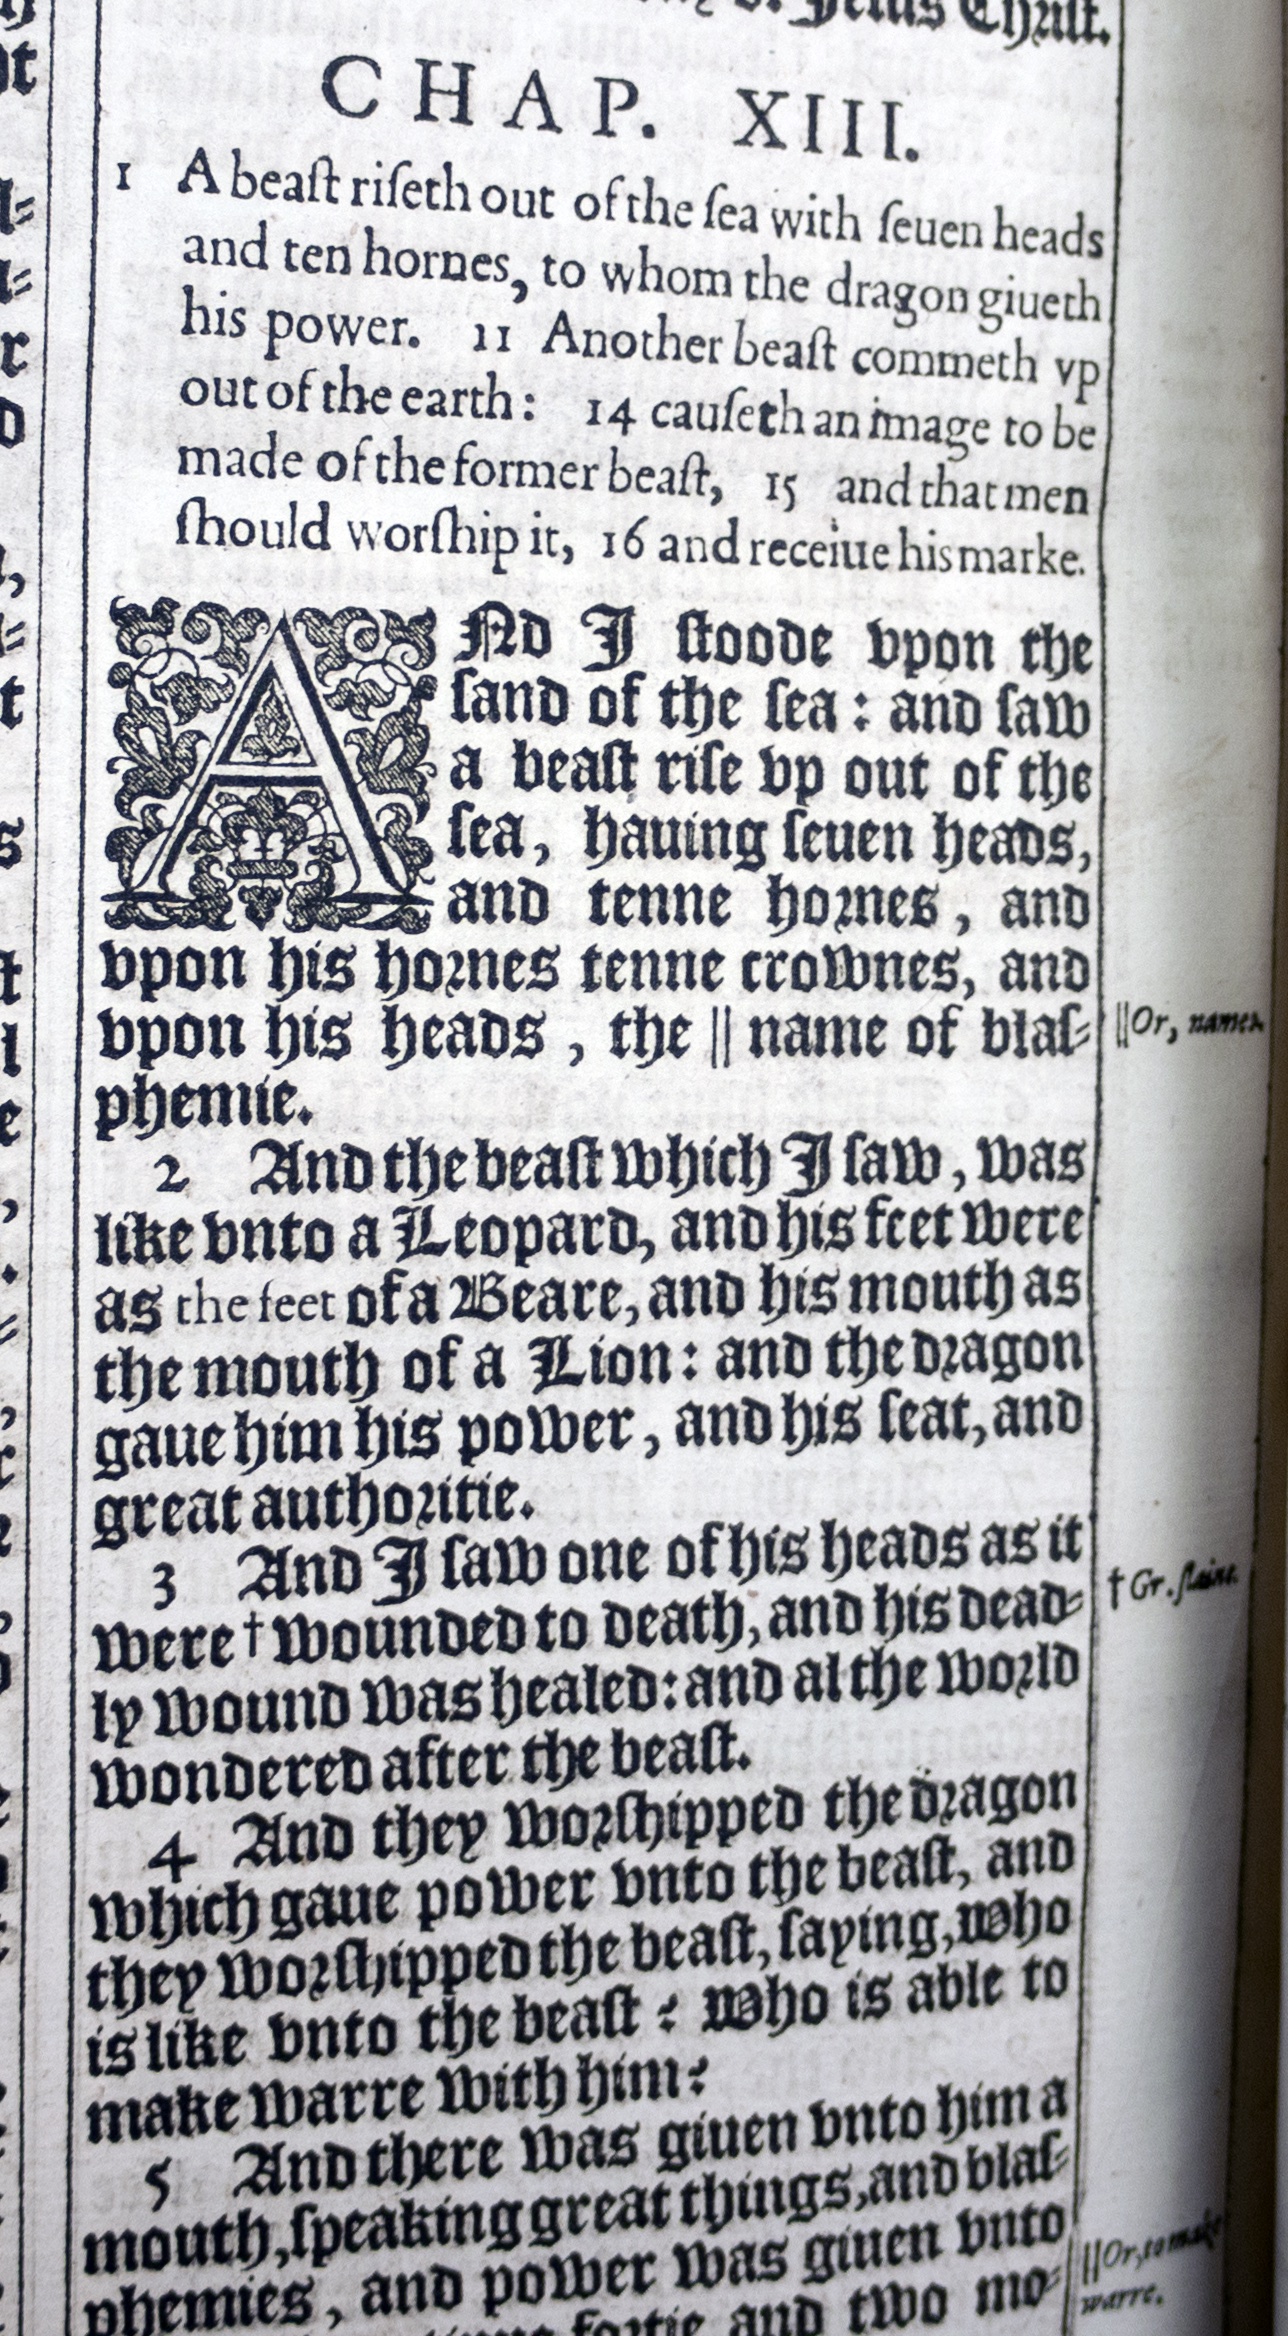 Jesus Christ.
CHAP. XIII.
1 A beaſt riſeth out of the ſea with ſeuen heads
and ten hornes, to whom the dragon giueth
his power. 11 Another beaſt commeth vp
out of the earth: 14 cauſeth an image to be
made of the former beaſt, 15 and that men
ſhould worſhip it, 16 and receiue his marke.
ANd I ſtoode vpon the
ſand of the ſea: and ſaw
a beaſt riſe vp out of the
ſea, hauing ſeuen heads,
and tenne hornes, and
vpon his hornes tenne crownes, and
vpon his heads, the || name of blaſ-
phemie.
|| Or, names.
2 And the beaſt which I ſaw, was
like vnto a Leopard, and his feet were
as the feet of a Beare, and his mouth as
the mouth of a Lion: and the dragon
gaue him his power, and his ſeat, and
great authoritie.
3 And I ſaw one of his heads as it
were † wounded to death, and his dead-
ly wound was healed: and al the world
wondered after the beaſt.
† Gr. ſlaine.
4 And they worſhipped the dragon
which gaue power vnto the beaſt, and
they worſhipped the beaſt, ſaying, who
is like vnto the beaſt? Who is able to
make warre with him?
5 And there was giuen vnto him a
mouth, ſpeaking great things, and blaſ-
phemies, and power was giuen vnto
fortie and two mo-
|| Or, to make
warre.